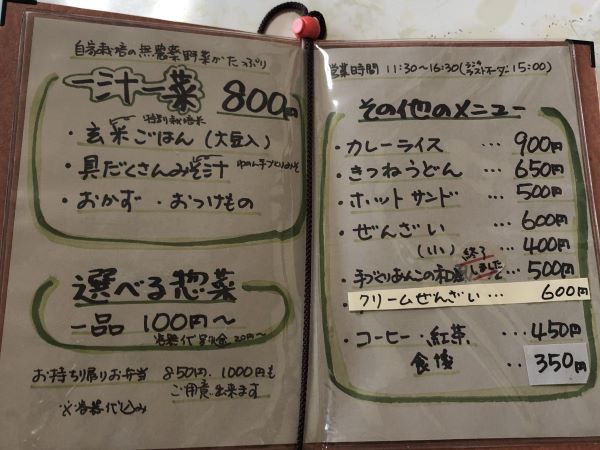 自家栽培の無農薬野菜がたっぷり
一汁一菜 800円
特別栽培米
・玄米ごはん (大豆入)
・具だくさんみそ汁
・おかず・おつけもの
選べる惣菜
一品 100円〜
容器代別途 20円〜
お持ち帰りお弁当 850円、1000円も
ご用意出来ます
※容器代込み
営業時間 11:30〜16:30(ランチラストオーダー 15:00)
その他のメニュー
・カレーライス … 900円
・きつねうどん … 650円
・ホットサンド … 500円
・ぜんざい … 600円
… 400円
終了しました
・手づくりあんこの … 500円
クリームぜんざい … 600円
・コーヒー・紅茶 … 450円
食後 350円